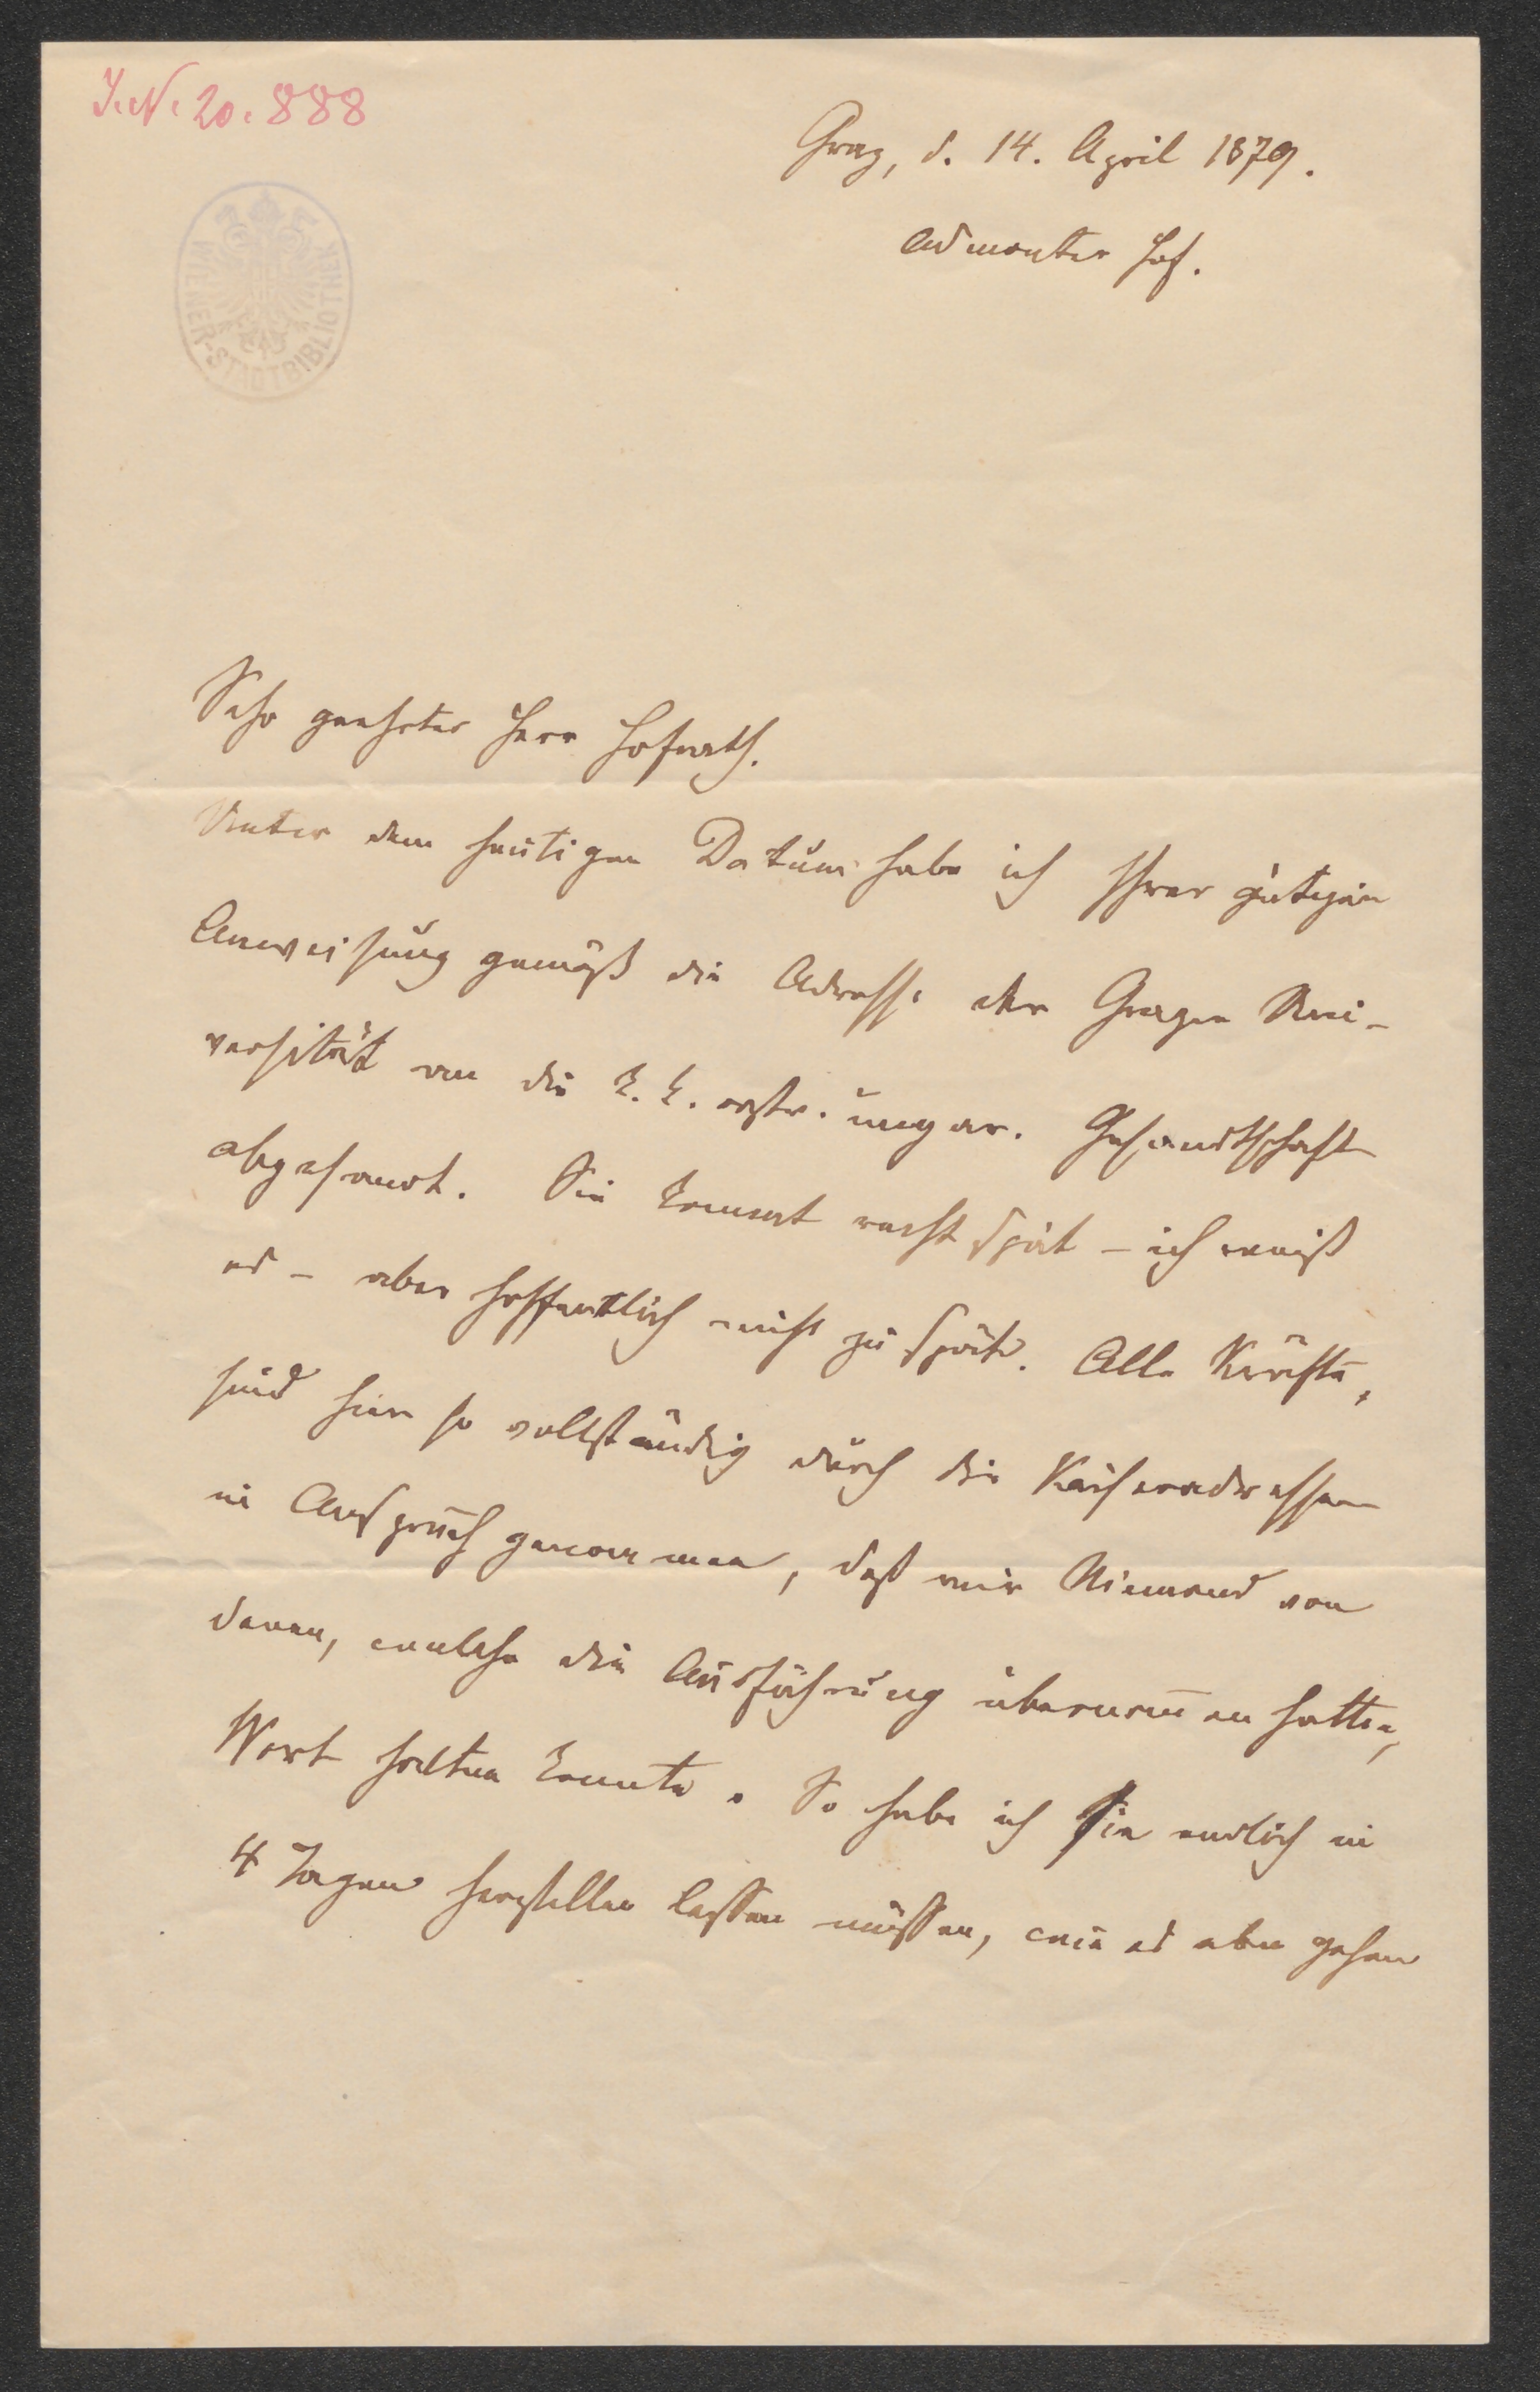 J.N. 20.888
Graz, d. 14. April 1879.
Admonter Hof.
WIENER-STADTBIBLIOTHEK
Sehr geehrter Herr Hofrath.
Unter dem heutigen Datum habe ich Ihrer gütigen
Anweisung gemäß die Adresse der Grazer Uni-
versität an die k. k. östr. ungar. Gesandtschaft
abgesandt. Sie kommt recht spät – ich weiß
es – aber hoffentlich nicht zu spät. Alle Kräfte,
sind hier so vollständig durch die Kaiseradressen
in Anspruch genommen, daß mir Niemand von
denen, welche die Ausführung übernom̄en hatten,
Wort halten konnte. So habe ich sie endlich in
4 Tagen herstellen lassen müssen, wie es eben gehen